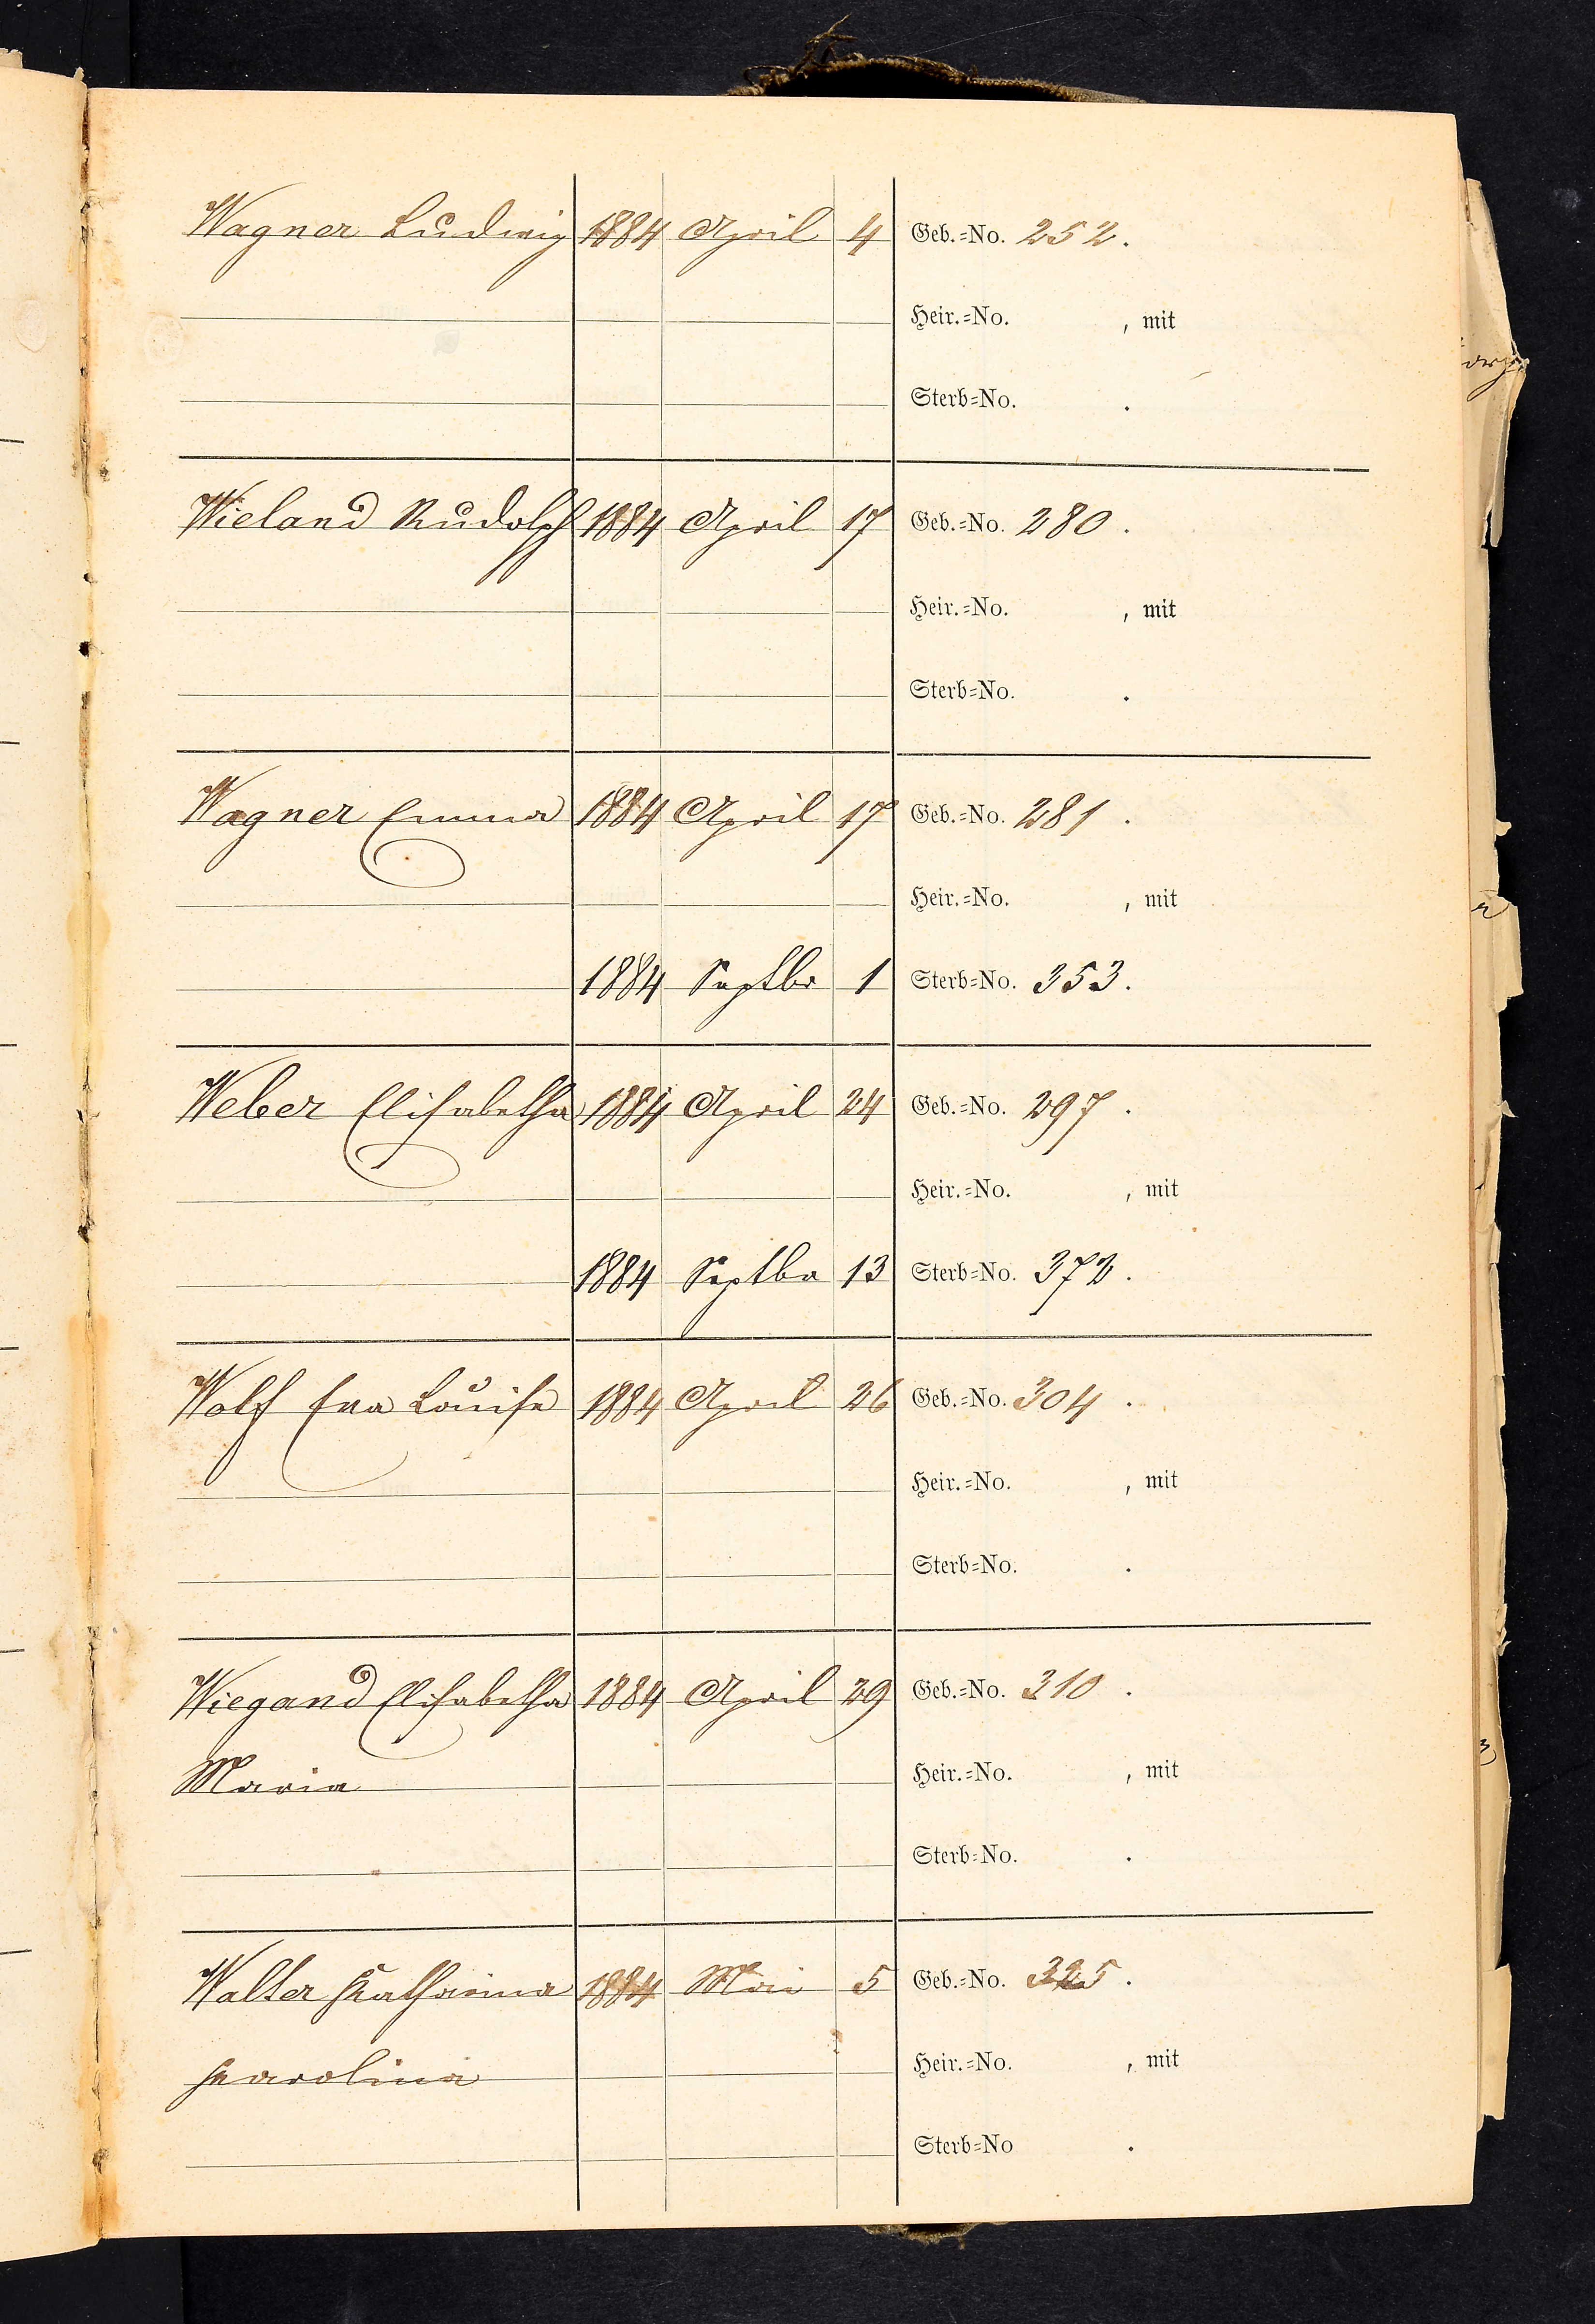 Wagner Ludwig 1884 April 4 Geb.=No. 252.
Heir.=No. , mit
Sterb=No. .
Wieland Rudolph 1884 April 17 Geb.=No. 280.
Heir.=No. , mit
Sterb=No. .
Wagner Emma 1884 April 17 Geb.=No. 281.
Heir.=No. , mit
1884 Septbr 1 Sterb=No. 353.
Weber Elisabetha 1884 April 24 Geb.=No. 297.
Heir.=No. , mit
1884 Septbr 13 Sterb=No. 372.
Wolf Eva Louise 1884 April 26 Geb.=No. 304.
Heir.=No. , mit
Sterb=No. .
Wiegand Elisabetha 1884 April 29 Geb.=No. 310.
Maria Heir.=No. , mit
Sterb=No. .
Walter Katharina 1884 Mai 5 Geb.=No. 325.
Karolina Heir.=No. , mit
Sterb=No .